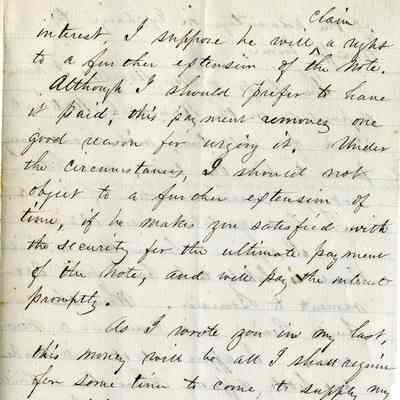 claim
interest I suppose he will ^ a right
to a further extension of the Note.
Although I should prefer to have
it paid, this payment removes one
good reason for urging it. Under
the circumstances, I should not
object to a further extension of
time, if he makes you satisfied with
the security for the ultimate payment
of the Note, and will pay the interest
promptly.
As I wrote you in my last,
this money will be all I shall require
for some time to come, to supply my